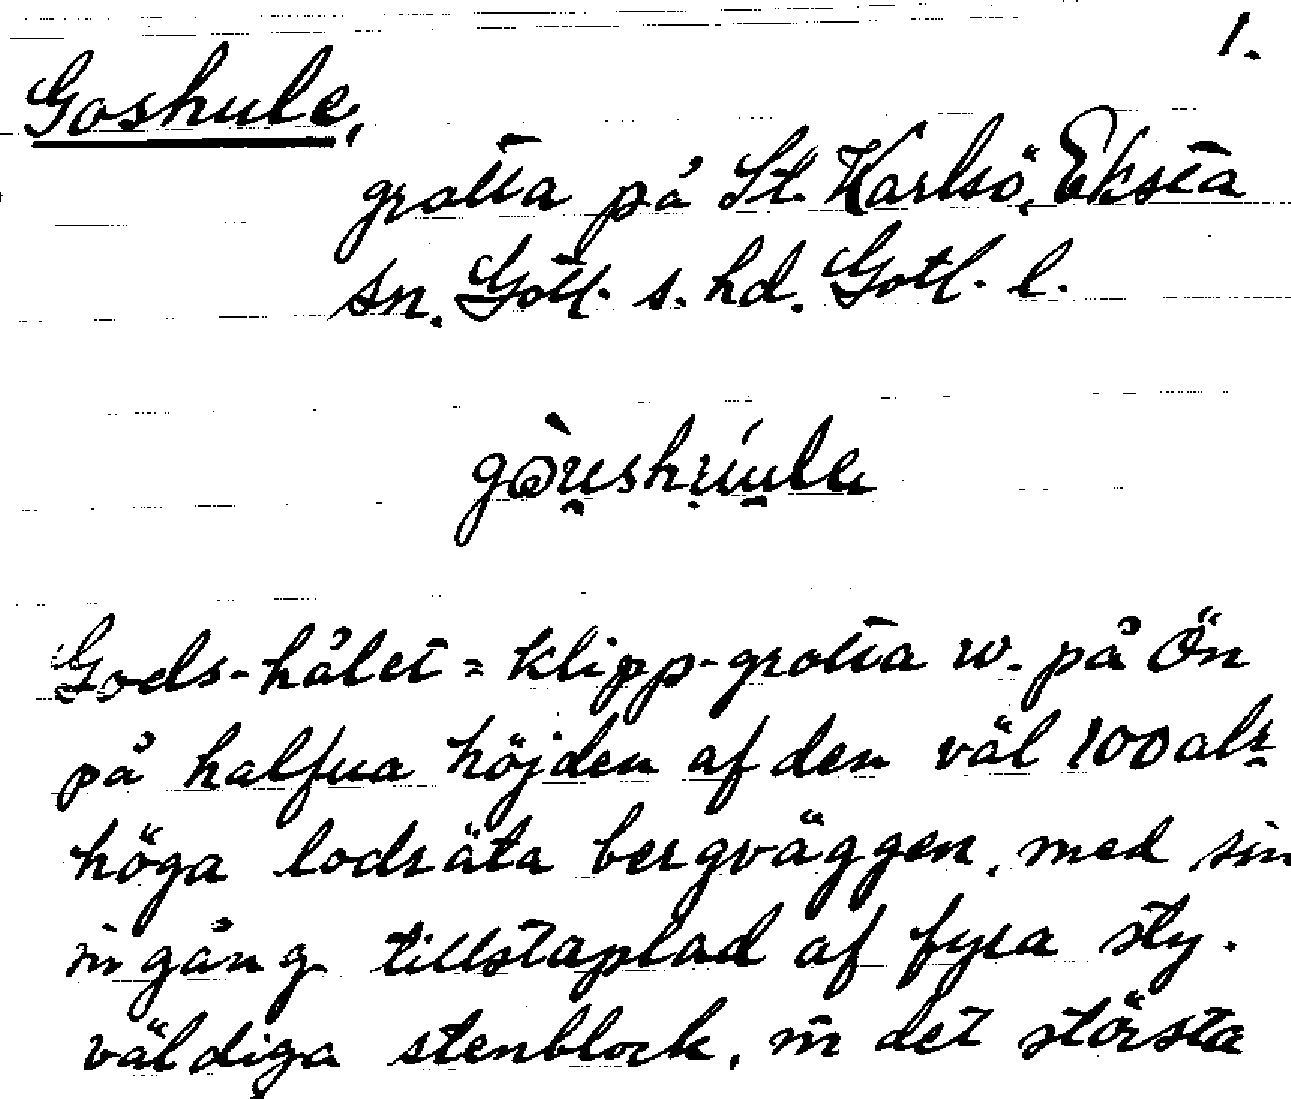 1.
Goshule,
grotta på St. Karlsö, Eksta
sn. Gotl. s. hd. Gotl. l.
gòu̯shúu̯le
Gods-hålet = klipp-grotta w. på Ön
på halfva höjden af den väl 100 alr
höga lodräta bergväggen, med sin
ingång tillstaplad af fyra sty.
väldiga stenblock, m det största